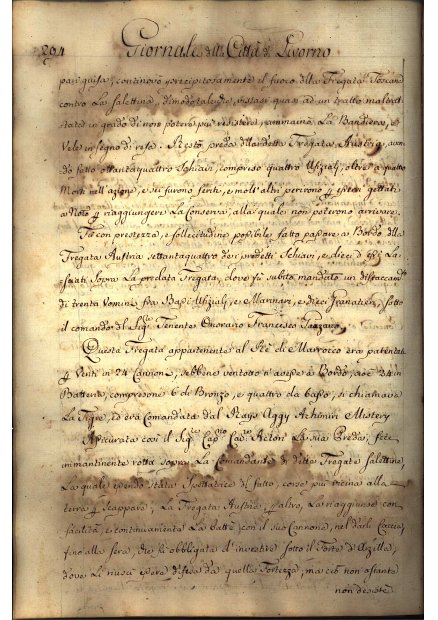 294 Giornale della Città di Livorno
par guisa, continovò precipitosamente il fuoco della Fregata Toscana
contro La Salettina, dimodotalechè, vistasi quasi ad un tratto maltrat
tata e in grado di non potere più resistere, ammainò La Bandiera, e
Vele in segno di resa. Restò preda dell'andetta Fregata Austria, aven
do fatto ottantaquattro Schiavi, compreso quattro Ufiziali, oltre a quattro
Morti nell'azione, e sei furono feriti, e molt'altri perirono p essersi gettati
a Noto p riaggiungere La Conserva, alla quale non poterono arrivare.
Fù con prestezza, e sollecitudine possibile fatto passare a Bordo della
Fregata Austria settantaquattro dei predetti Schiavi, e dieci d essi La
sciati sopra La predata Fregata, dove fù subito mandato un distaccam
di trenta Uomini fra Bassi Ufiziali, e Marinari, e dieci Granatieri, sotto
il comando del Sig Tenente Onorario Francesco
Questa Fregata appartenente al Rè di Marrocco era patentata
p Venti in 24 Cannoni, sebbene ventotto ne avesse a Bordo, cioè 24 in
Batteria, compresone 6 di Bronzo, e quattro da basso, si chiamava
La Tigre, ed era Comandata dal Rays Aggy Mistery
Assicurata così il Sig Cap Cav Acton La sua Preda, fece
immantinente rotta sopra La Comandante di detta Fregata Salettina,
La quale essendo stata Spettatrice di fatto, corse più vicina alla
terra p scappare; La Fregata Austria p altro, La raggiunse con
facilità, e continuamente La battè con il suo Cannone, nel darli Caccia
fino alla sera, che fù obbligata d'investire sotto il Forte d'Arzilla,
dove Li riuscì essere difesa da quella Fortezza, ma ciò non ostante
non desistè